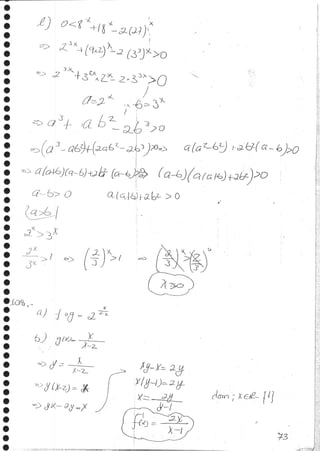 l) 0<8^x+18^x-2(27)^x
=> 2^3x+(9x2)^x-2(3^3)^x>0
=> 2^3x+3^2x.2^x-2.3^3x>0
a=2^x b=3^x
=> a^3+ab^2-2b^3>0
=>(a^3-ab^2)+(2ab^2-2b^3)>0=> a(a^2-b^2)+2b^2(a-b)>0
=> a(a+b)(a-b)+2b^2(a-b)>0 (a-b)(a(a+b)+2b^2)>0
a-b>0 a(a+b)+2b^2>0
a>b
2^x>3^x
2^x/3^x>1 => (2/3)^x>1 => (2/3)^x>(2/3)^0
108.-
a) fog=2^
b) g(x)= x/x-2
=> y= x/x-2 xy-x=2y
=> y(x-2)=x x(y-1)=2y
=> yx-2y=x x=2y/y-1 dom; x∈R-{1}
f^-1(x)=2x/x-1
73